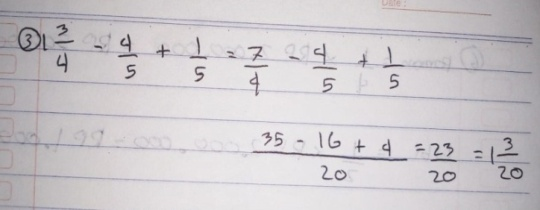 Date :
③ 1 3/4 - 4/5 + 1/5 = 7/4 - 4/5 + 1/5
(35 - 16 + 4)/20 = 23/20 = 1 3/20